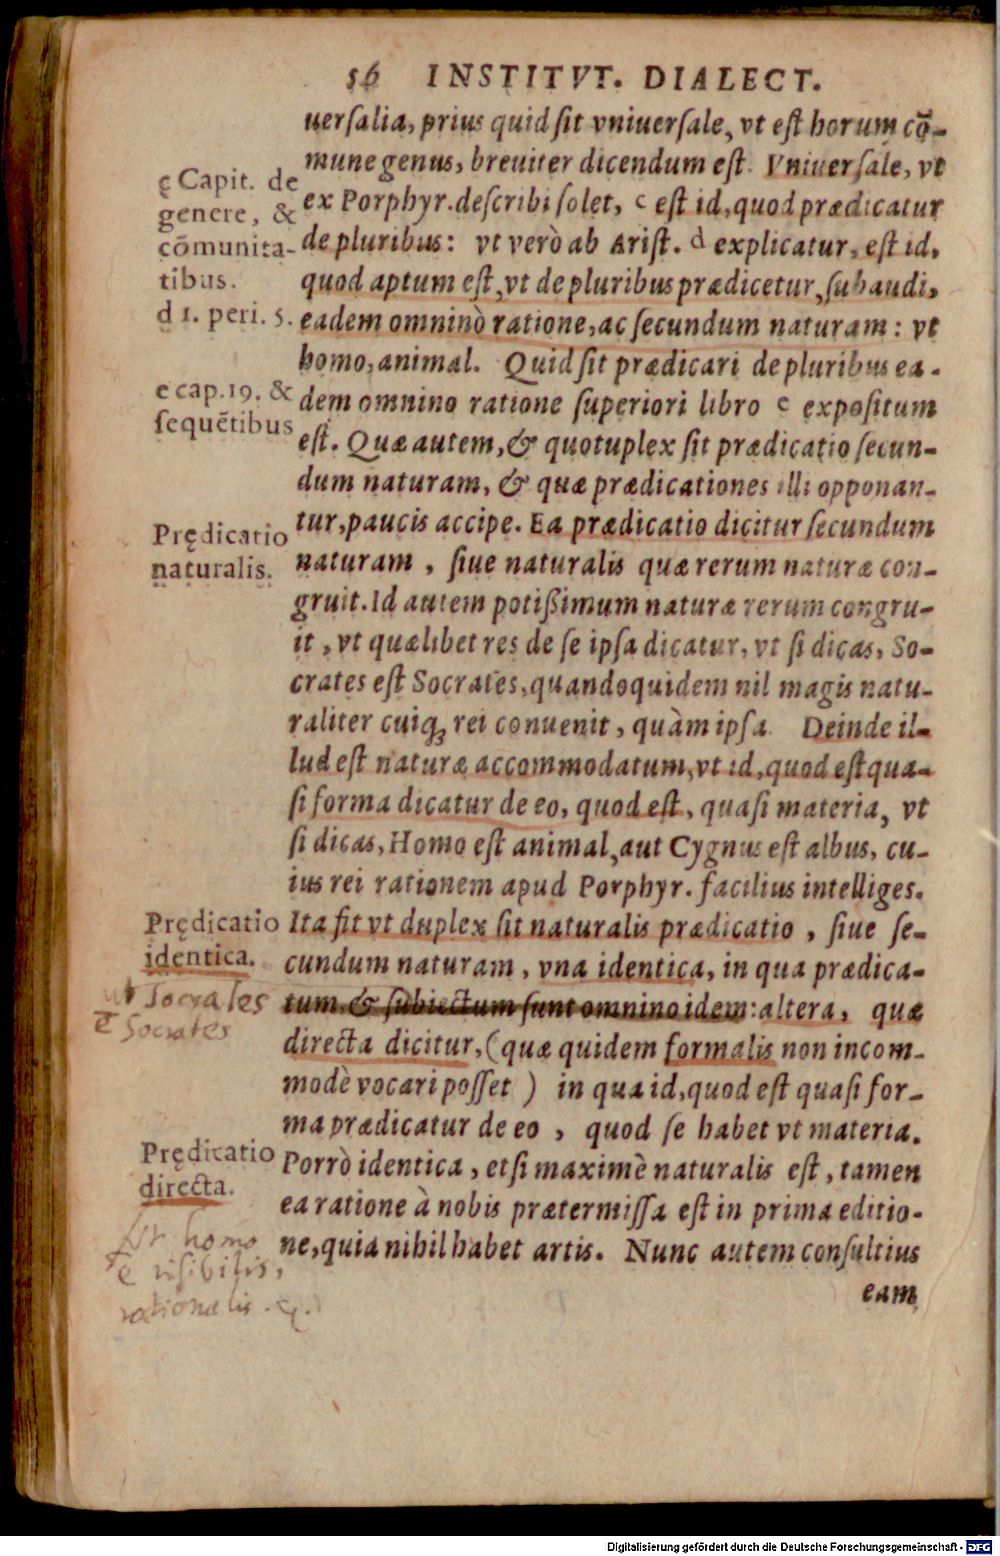 56 INSTITVT. DIALECT.
uerſalia, prius quid ſit vniuerſale, vt eſt horum cõ-
mune genus, breuiter dicendum eſt. Vniuerſale, vt
ex Porphyr. deſcribi ſolet, c eſt id, quod prædicatur
de pluribus: vt verò ab Ariſt. d explicatur, eſt id,
quod aptum eſt, vt de pluribus prædicetur, ſubaudi,
eadem omninò ratione, ac ſecundum naturam: vt
homo, animal. Quid ſit prædicari de pluribus ea-
dem omnino ratione ſuperiori libro e expoſitum
eſt. Quæ autem, & quotuplex ſit prædicatio ſecun-
dum naturam, & quæ prædicationes illi opponan-
tur, paucis accipe. Ea prædicatio dicitur ſecundum
naturam, ſiue naturalis quæ rerum naturæ con-
gruit. Id autem potißimum naturæ rerum congru-
it, vt quælibet res de ſe ipſa dicatur, vt ſi dicas, So-
crates eſt Socrates, quandoquidem nil magis natu-
raliter cuiqꝫ rei conuenit, quàm ipſa. Deinde il-
lud eſt naturæ accommodatum, vt id, quod eſt qua-
ſi forma dicatur de eo, quod eſt, quaſi materia, vt
ſi dicas, Homo eſt animal, aut Cygnus eſt albus, cu-
ius rei rationem apud Porphyr. facilius intelliges.
Ita fit vt duplex ſit naturalis prædicatio, ſiue ſe-
cundum naturam, vna identica, in qua prædica-
tum & ſubiectum ſunt omnino idem: altera, quæ
directa dicitur, (quæ quidem formalis non incom-
modè vocari poſſet) in qua id, quod eſt quaſi for-
ma prædicatur de eo, quod ſe habet vt materia.
Porrò identica, etſi maximè naturalis eſt, tamen
ea ratione à nobis prætermiſſa eſt in prima editio-
ne, quia nihil habet artis. Nunc autem conſultius
eam
c Capit. de
genere, &
cõmunita-
tibus.
d 1. peri. 5.
e cap. 19. &
ſequẽtibus
Prędicatio
naturalis.
Prędicatio
identica.
ut Socrates
ẽ Socrates
Prędicatio
directa.
Ut homo
ẽ risibilis,
rationalis. &.